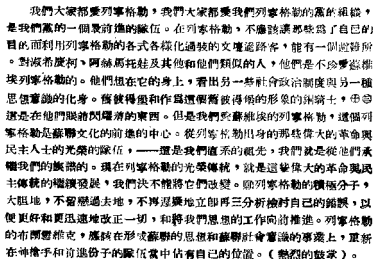 我們大家都愛列寧格勒，我們大家都愛我們列寧格勒的黨的組織，
是我們黨的一個最前進的隊伍。在列寧格勒，不應該讓那些爲了自己的
目的而利用列寧格勒的各式各樣化過裝的文壇流路客，能有一個避難所
。對淑希慶柯、阿赫馬托娃及其他和他們類似的人，他們是不珍愛蘇維
埃列寧格勒的。他們想在它的身上，看出另一些社會政治制度與另一種
思想意識的化身。舊彼得堡和作爲這個舊彼得堡的形象的銅騎士，
還是在他們眼前閃耀着的東西。但是我們愛蘇維埃的列寧格勒，這個列
寧格勒是蘇聯文化的前進的中心。從列寧格勒出身的那些偉大的革命與
民主人士的光榮的隊伍，——這是我們直系的祖先，我們就是從他們承
繼我們的族譜的。現在列寧格勒的光榮傳統，就是這些偉大的革命與民
主傳統的繼續發展，我們決不能將它們改變。願列寧格勒的積極分子，
大胆地，不留戀過去地，不再遲疑地立即再三分析檢討自己的錯誤，以
便更好和更迅速地改正一切，和將我們思想的工作向前推進。列寧格勒
的布爾雪維克，應該在形成蘇聯的思想和蘇聯社會意識的事業上，重新
在神槍手和前進份子的隊伍當中佔有自己的位置。（熱烈的鼓掌）。